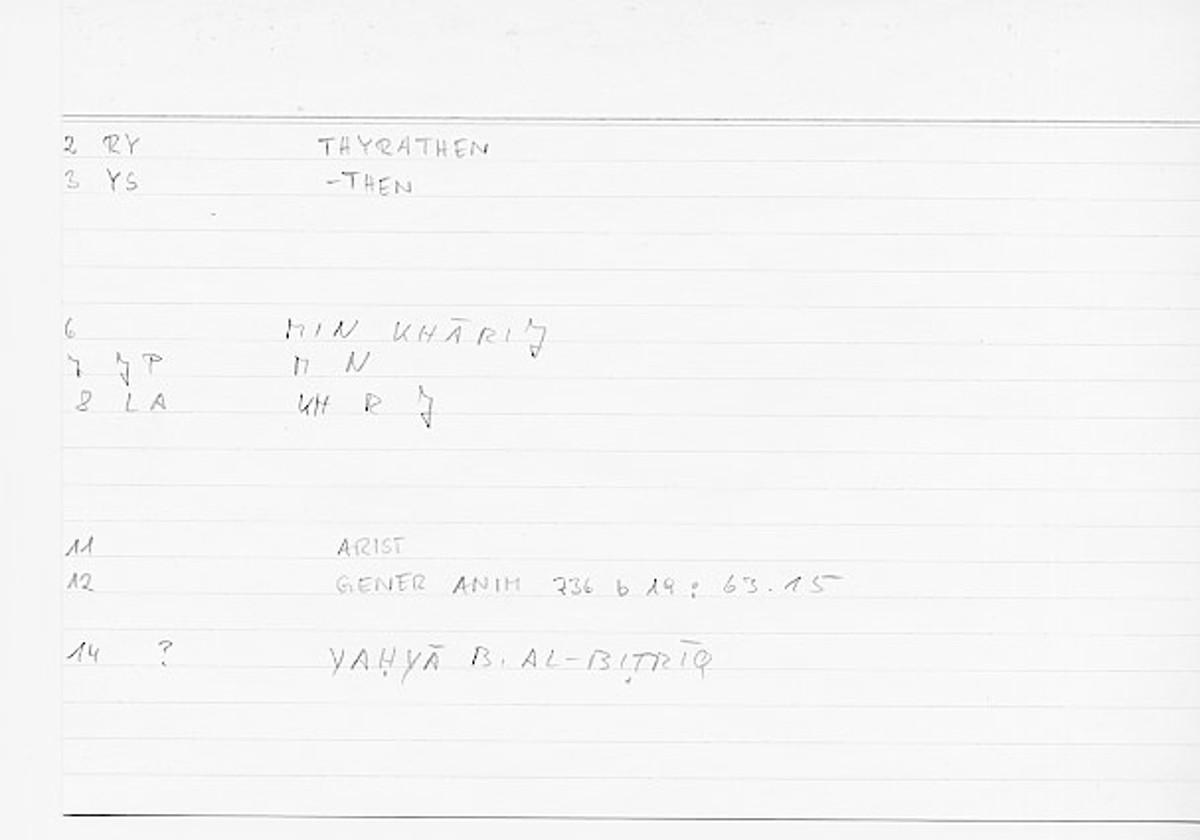 2 RY THYRATHEN
3 YS -THEN
6 MIN KHĀRIJ
7 JP M N
8 LA KH R J
11 ARIST
12 GENER ANIM 736 b 19 : 63.15
14 ? YAḤYĀ B. AL-BIṬRĪQ